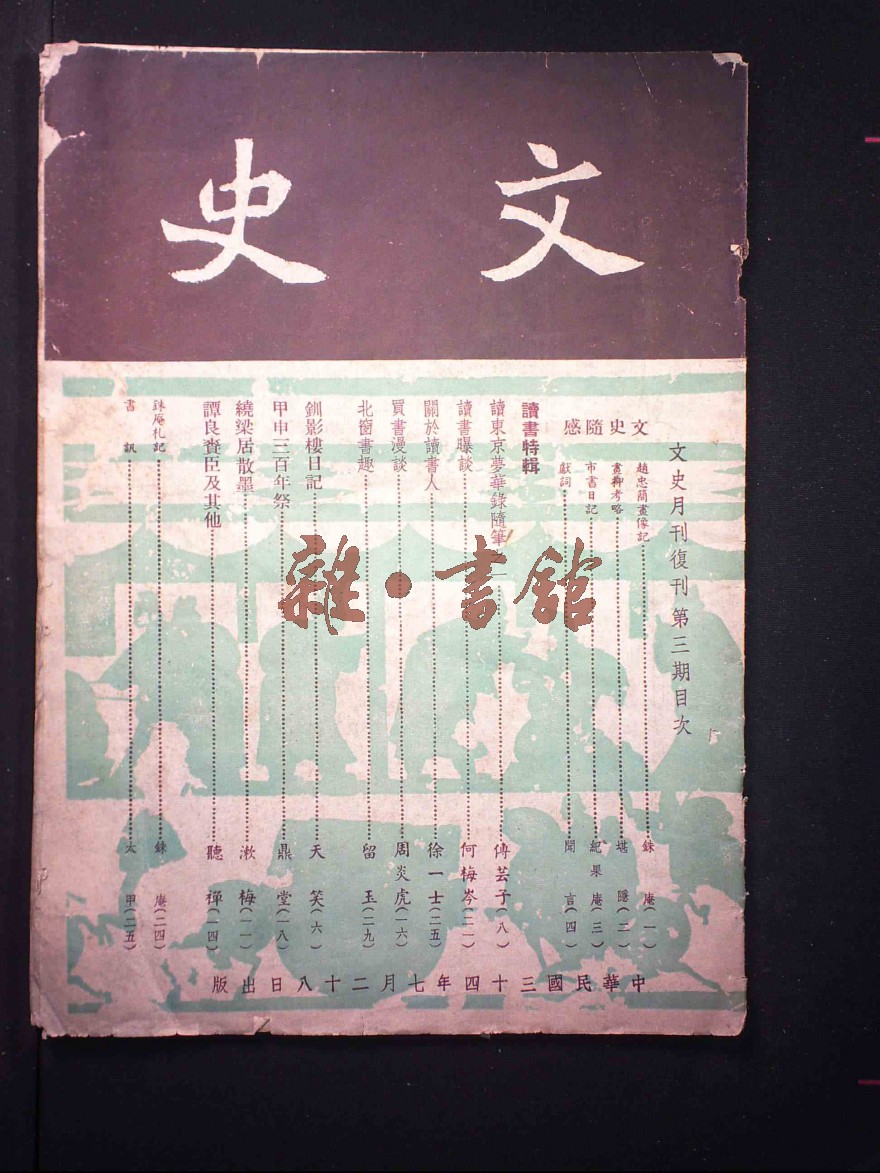 文史
文史月刊復刊第三期目次
文史隨感
趙忠簡畫像記 銖庵(一)
畫舫考略 堪隱(二)
市書日記 紀果庵(三)
獻詞 聞言(四)
讀書特輯
讀東京夢華錄隨筆 傅芸子(八)
讀書曝談 何梅岑(二一)
關於讀書人 徐一士(二五)
買書漫談 周炎虎(一六)
北窗書趣 留玉(二九)
釧影樓日記 天笑(六)
甲申三百年祭 鼎堂(一八)
繞梁居散墨 漱梅(一一)
譚良賫臣及其他 聽禪(一四)
銖庵札記 銖庵(二四)
書訊 太甲(二五)
中華民國三十四年七月二十八日出版
雜·書館